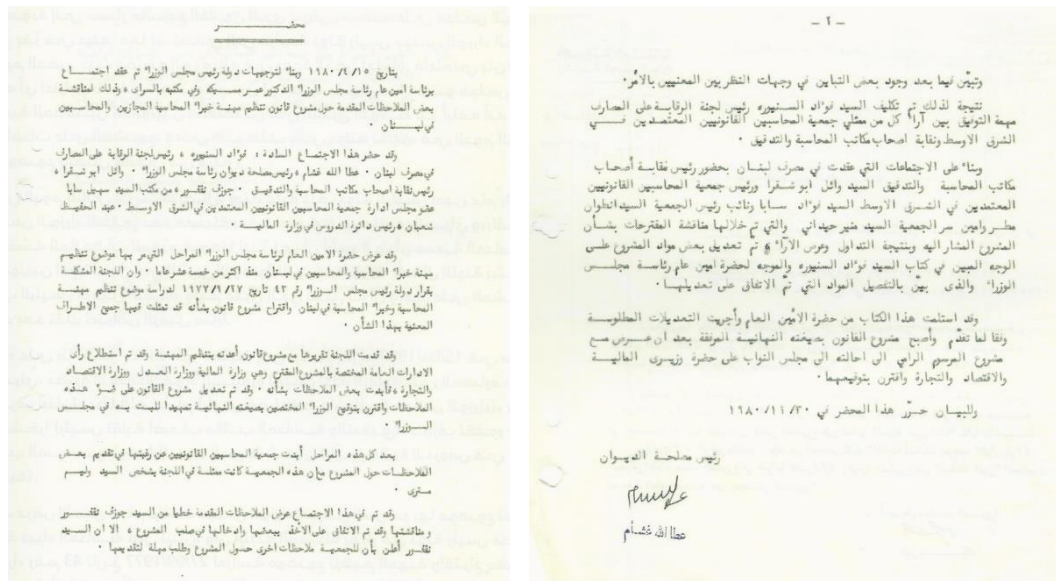 محضر
بتاريخ ١٩٨٠/٤/١٥ وبناء لتوجيهات دولة رئيس مجلس الوزراء تم عقد اجتماع
برئاسة امين عام رئاسة مجلس الوزراء الدكتور عمر مسيكه وفي مكتبه بالسراي وذلك لمناقشة
بعض الملاحظات المقدمة حول مشروع قانون تنظيم مهنة خبراء المحاسبة المجازين والمحاسبين
في لبنان
وقد حضر هذا الاجتماع السادة : فؤاد السنيوره ، رئيس لجنة الرقابة على المصارف
في مصرف لبنان ، عطا الله غشام ، رئيس مصلحة ديوان رئاسة مجلس الوزراء ، وائل ابو شقرا ،
رئيس نقابة اصحاب مكاتب المحاسبة والتدقيق ، جوزف تقفور ، من مكتب السيد سهيل سابا
عضو مجلس ادارة جمعية المحاسبين القانونيين المعتمدين في الشرق الاوسط ، عبد الحفيظ
شعبان ، رئيس دائرة الدروس في وزارة المالية .
وقد عرض حضرة الامين العام لرئاسة مجلس الوزراء المراحل التي مر بها موضوع تنظيم
مهنة خبراء المحاسبة والمحاسبين في لبنان منذ اكثر من خمسة عشر عاما ، وان اللجنة المشكلة
بقرار دولة رئيس مجلس الوزراء رقم ٤٣ تاريخ ١٩٧٧/٩/٢٧ لدراسة موضوع تنظيم مهنة
المحاسبة وخبراء المحاسبة في لبنان واقتراح مشروع قانون بشأنه قد تمثلت فيها جميع الاطراف
المعنية بهذا الشأن .
وقد قدمت اللجنة تقريرها مع مشروع قانون أعدته بتنظيم المهنة وقد تم استطلاع رأي
الادارات العامة المختصة بالمشروع المقترح وهي وزارة المالية ووزارة العدل ووزارة الاقتصاد
والتجارة ، فأبدت بعض الملاحظات بشأنه . وقد تم تعديل مشروع القانون على ضوء هذه
الملاحظات واقترن بتوقيع الوزراء المختصين بصيغته النهائية تمهيدا للبت به في مجلس
الوزراء .
بعد كل هذه المراحل أبدت جمعية المحاسبين القانونيين عن رغبتها في تقديم بعض
الملاحظات حول المشروع مع ان هذه الجمعية كانت ممثلة في اللجنة بشخص السيد وليم
متري .
وقد تم في هذا الاجتماع عرض الملاحظات المقدمة خطيا من السيد جوزف تقفور
ومناقشتها وقد تم الاتفاق على الأخذ ببعضها وادخالها في صلب المشروع ، الا ان السيد
تقفور أعلن بأن للجمعية ملاحظات اخرى حول المشروع وطلب مهلة لتقديمها .
- ٢ -
وتبيّن فيما بعد وجود بعض التباين في وجهات النظر بين المعنيين بالأمر .
نتيجة لذلك تم تكليف السيد فؤاد السنيوره رئيس لجنة الرقابة على المصارف
مهمة التوفيق بين آراء كل من ممثلي جمعية المحاسبين القانونيين المعتمدين في
الشرق الاوسط ونقابة اصحاب مكاتب المحاسبة والتدقيق .
وبناء على الاجتماعات التي عقدت في مصرف لبنان بحضور رئيس نقابة أصحاب
مكاتب المحاسبة والتدقيق السيد وائل ابو شقرا ورئيس جمعية المحاسبين القانونيين
المعتمدين في الشرق الاوسط السيد فؤاد سابا ونائب رئيس الجمعية السيد انطوان
مطر وامين سر الجمعية السيد منير حيداني والتي تم خلالها مناقشة المقترحات بشأن
المشروع المشار اليه وبنتيجة التداول وعرض الآراء تم تعديل بعض مواد المشروع على
الوجه المبين في كتاب السيد فؤاد السنيوره والموجه لحضرة امين عام رئاسة مجلس
الوزراء والذي بيّن بالتفصيل المواد التي تمّ الاتفاق على تعديلها .
وقد استلمت هذا الكتاب من حضرة الأمين العام وأجريت التعديلات المطلوبة
وفقا لما تقدّم وأصبح مشروع القانون بصيغته النهائية الموفقة بعد ان عرض مع
مشروع المرسوم الرامي الى احالته الى مجلس النواب على حضرة وزيري المالية
والاقتصاد والتجارة واقترن بتوقيعهما .
وللبيان حرّر هذا المحضر في ١٩٨٠/١١/٣٠
رئيس مصلحة الديوان
عطا الله غشام